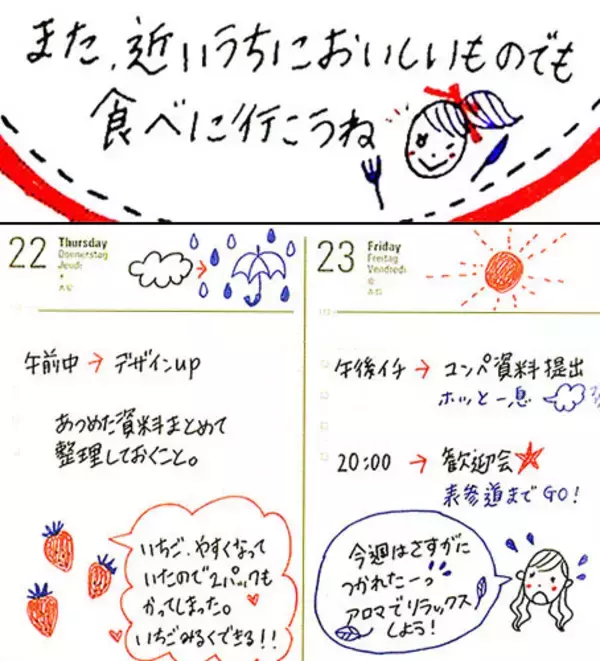 また、近いうちにおいしいものでも
食べに行こうね
22 Thursday
Donnerstag
Jeudi
木
23 Friday
Freitag
Vendredi
金
午前中→デザインup
あつめた資料まとめて
整理しておくこと。
いちご、やすくなって
いたので2パックも
かってしまった。
いちごみるくできる!!
午後イチ→コンペ資料提出
ホッと一息
20:00→歓迎会
表参道までGO!
今週はさすがに
つかれたーっ
アロマでリラックス
しよう!